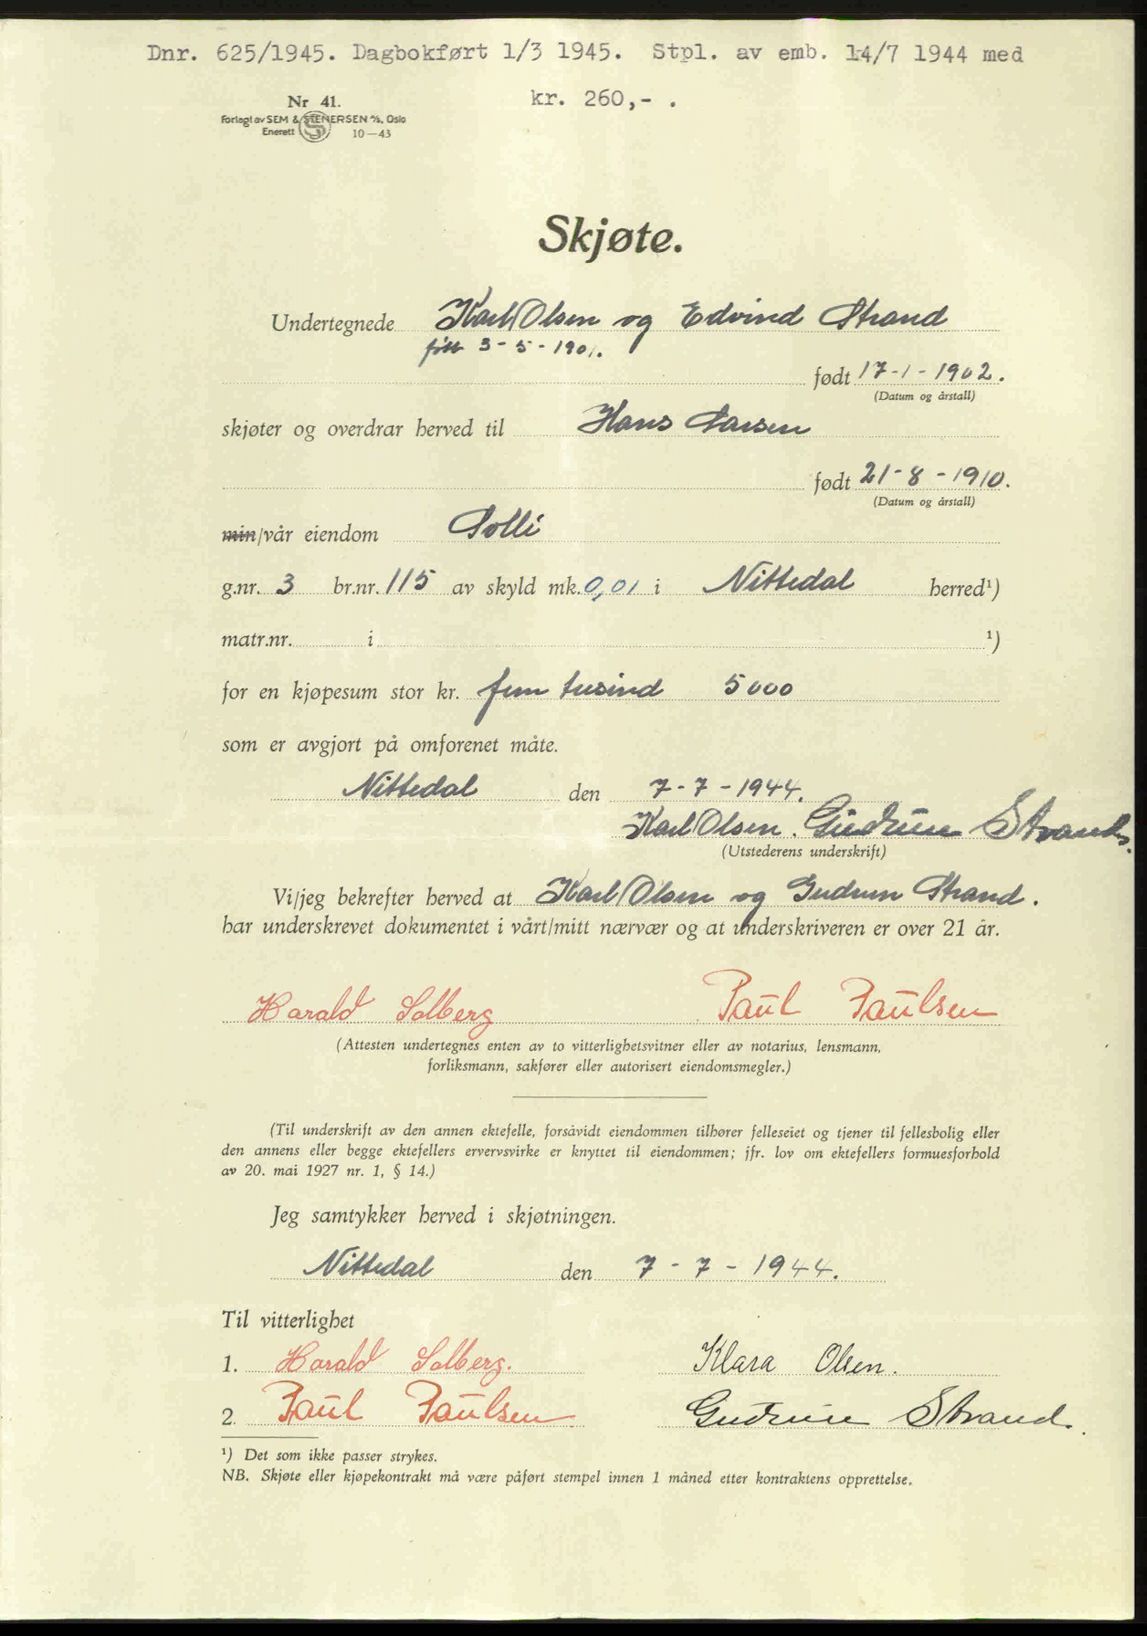 Dnr. 625/1945. Dagbokført 1/3 1945. Stpl. av emb. 14/7 1944 med
kr. 260,- .
Nr 41.
Forlagt av SEM & STENERSEN A/S, Oslo
Enerett 10—43
Skjøte.
Undertegnede Karl Olsen og Edvind Strand
født 3-5-1901.
født 17-1-1902.
(Datum og årstall)
skjøter og overdrar herved til Hans Larsen
født 21-8-1910.
(Datum og årstall)
min/vår eiendom Solli
g.nr. 3 br.nr. 115 av skyld mk. 0,01 i Nittedal herred¹)
matr.nr. i ¹)
for en kjøpesum stor kr. fem tusind 5000
som er avgjort på omforenet måte.
Nittedal den 7-7-1944.
Karl Olsen. Gudrun Strand.
(Utstederens underskrift)
Vi/jeg bekrefter herved at Karl Olsen og Gudrun Strand.
har underskrevet dokumentet i vårt/mitt nærvær og at underskriveren er over 21 år.
Harald Solberg Paul Paulsen
(Attesten undertegnes enten av to vitterlighetsvitner eller av notarius, lensmann,
forliksmann, sakfører eller autorisert eiendomsmegler.)
(Til underskrift av den annen ektefelle, forsåvidt eiendommen tilhører felleseiet og tjener til fellesbolig eller
den annens eller begge ektefellers ervervsvirke er knyttet til eiendommen; jfr. lov om ektefellers formuesforhold
av 20. mai 1927 nr. 1, § 14.)
Jeg samtykker herved i skjøtningen.
Nittedal den 7-7-1944.
Til vitterlighet
1. Harald Solberg. Klara Olsen.
2. Paul Paulsen Gudrun Strand.
¹) Det som ikke passer strykes.
NB. Skjøte eller kjøpekontrakt må være påført stempel innen 1 måned etter kontraktens opprettelse.